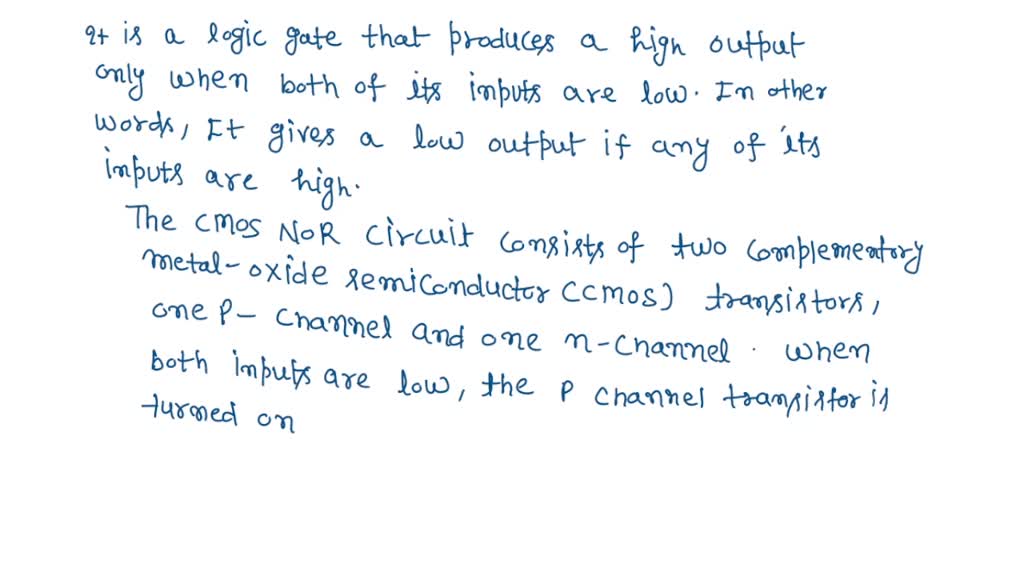 It is a logic gate that produces a high output
only when both of its inputs are low. In other
words, It gives a low output if any of its
inputs are high.
The CMOS NOR circuit consists of two complementory
metal-oxide semiconductor (CMOS) transistors,
one P- channel and one n-channel. when
both inputs are low, the P channel transistor is
turned on